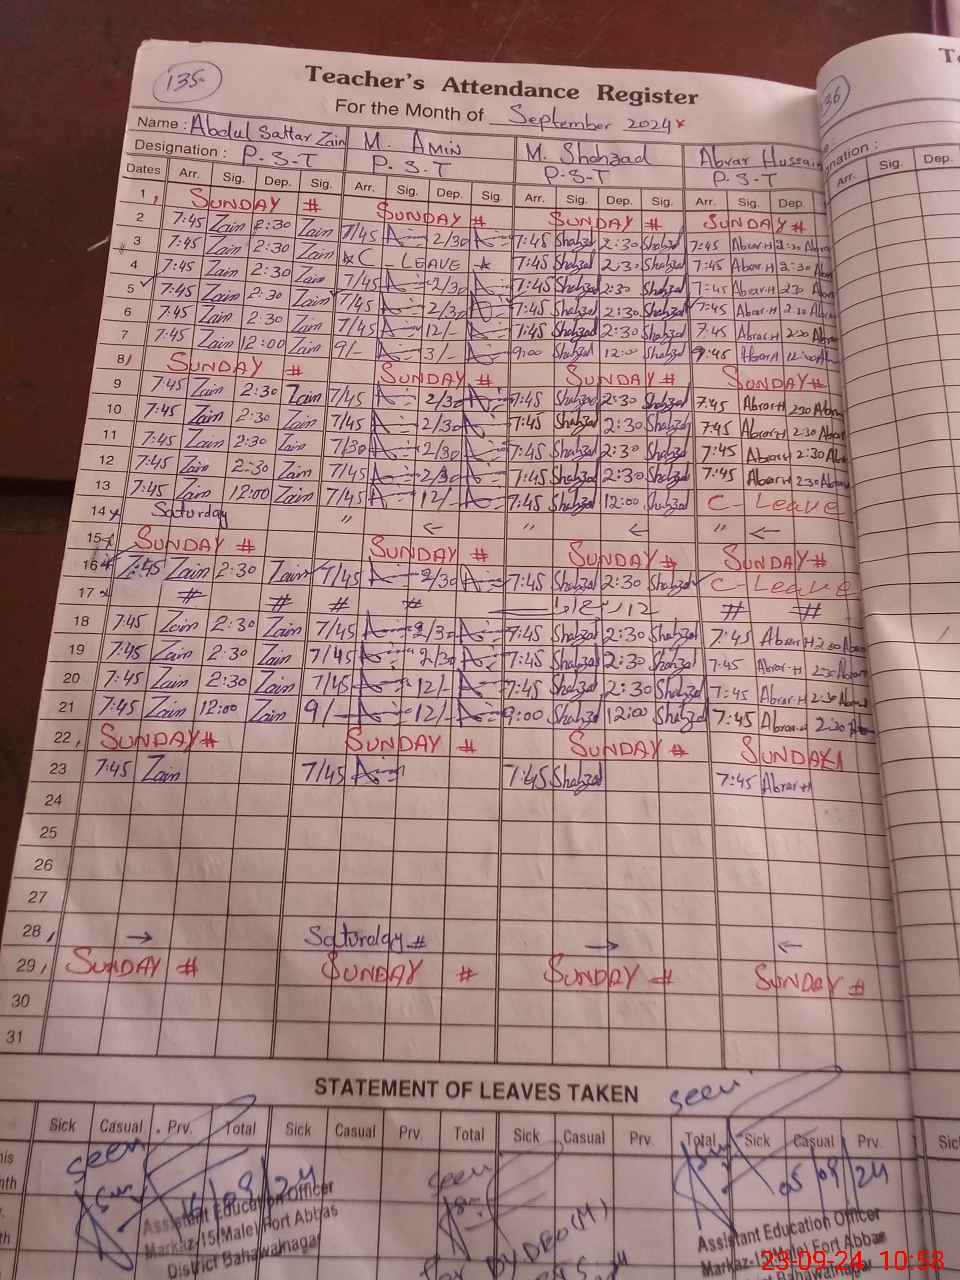 135-
Teacher's Attendance Register
For the Month of September 2024
Name : Abdul Sattar Zain M. Amin M. Shahzad Abrar Hussain
Designation : P.S.T P.S.T P.S.T P.S.T
Dates Arr. Sig. Dep. Sig. Arr. Sig. Dep. Sig. Arr. Sig. Dep. Sig. Arr. Sig. Dep.
1, SUNDAY # SUNDAY # SUNDAY # SUNDAY #
2 7:45 Zain 2:30 Zain 7/45 2/30 7:45 Shahzad 2:30 Shahzad 7:45 Abrar-H 2:30 Abrar
3 7:45 Zain 2:30 Zain C - LEAVE 7:45 Shahzad 2:30 Shahzad 7:45 Abrar-H 2:30 Abrar
4 7:45 Zain 2:30 Zain 7/45 2/30 7:45 Shahzad 2:30 Shahzad 7:45 Abrar-H 2:30
5 7:45 Zain 2:30 Zain 7/45 2/30 7:45 Shahzad 2:30 Shahzad 7:45 Abrar-H 2:30
6 7:45 Zain 2:30 Zain 7/45 12/- 7:45 Shahzad 2:30 Shahzad 7:45 Abrar-H 2:30
7 7:45 Zain 12:00 Zain 9/- 3/- 9:00 Shahzad 12:00 Shahzad 9:45 Abrar-H 12:00
8, SUNDAY # SUNDAY # SUNDAY # SUNDAY #
9 7:45 Zain 2:30 Zain 7/45 2/30 7:45 Shahzad 2:30 Shahzad 7:45 Abrar-H 2:30 Abrar
10 7:45 Zain 2:30 Zain 7/45 2/30 7:45 Shahzad 2:30 Shahzad 7:45 Abrar-H 2:30
11 7:45 Zain 2:30 Zain 7/30 2/30 7:45 Shahzad 2:30 Shahzad 7:45 Abrar-H 2:30
12 7:45 Zain 2:30 Zain 7/45 2/30 7:45 Shahzad 2:30 Shahzad 7:45 Abrar-H 2:30
13 7:45 Zain 12:00 Zain 7/45 12/- 7:45 Shahzad 12:00 Shahzad C- Leave
14 Saturday " ← " ← " ←
15 SUNDAY # SUNDAY # SUNDAY # SUNDAY #
16 7:45 Zain 2:30 Zain 7/45 2/30 7:45 Shahzad 2:30 Shahzad C-Leave
17 # # # # # #
18 7:45 Zain 2:30 Zain 7/45 2/30 7:45 Shahzad 2:30 Shahzad 7:45 Abrar-H 2:30
19 7:45 Zain 2:30 Zain 7/45 2/30 7:45 Shahzad 2:30 Shahzad 7:45 Abrar-H 2:30
20 7:45 Zain 2:30 Zain 7/45 12/- 7:45 Shahzad 2:30 Shahzad 7:45 Abrar-H 2:30
21 7:45 Zain 12:00 Zain 9/- 12/- 9:00 Shahzad 12:00 Shahzad 7:45 Abrar-H 2:30
22, SUNDAY # SUNDAY # SUNDAY # SUNDAY
23 7:45 Zain 7/45 7:45 Shahzad 7:45 Abrar-H
24
25
26
27
28, → Saturday # → ←
29, SUNDAY # SUNDAY # SUNDAY # SUNDAY #
30
31
STATEMENT OF LEAVES TAKEN
seen
Sick Casual Prv. Total Sick Casual Prv. Total Sick Casual Prv. Total Sick Casual Prv.
seen seen
09/24 05/09/24
Assistant Education Officer
Markaz-15(Male) Fort Abbas
District Bahawalnagar
DYDEO(M)
Assistant Education Officer
Markaz-15(Male) Fort Abbas
Bahawalnagar
36
Arr. Sig. Dep.
23-09-24 10:58